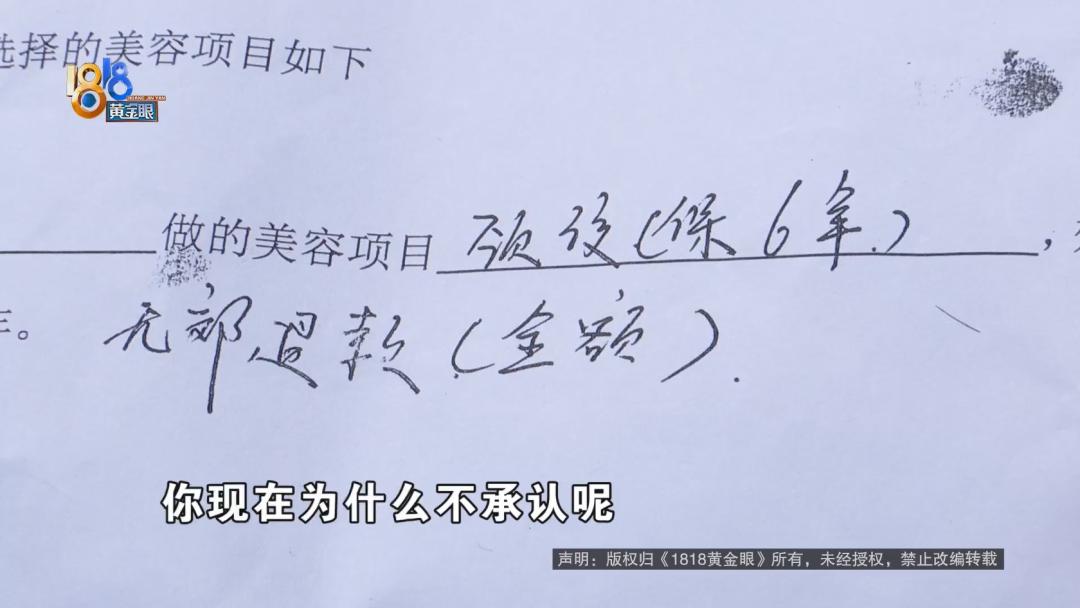 选择的美容项目如下
1818
HUANG JIN YAN
黄金眼
做的美容项目 颈纹(保6年),
。 无郊退款(全额).
你现在为什么不承认呢
声明：版权归《1818黄金眼》所有，未经授权，禁止改编转载